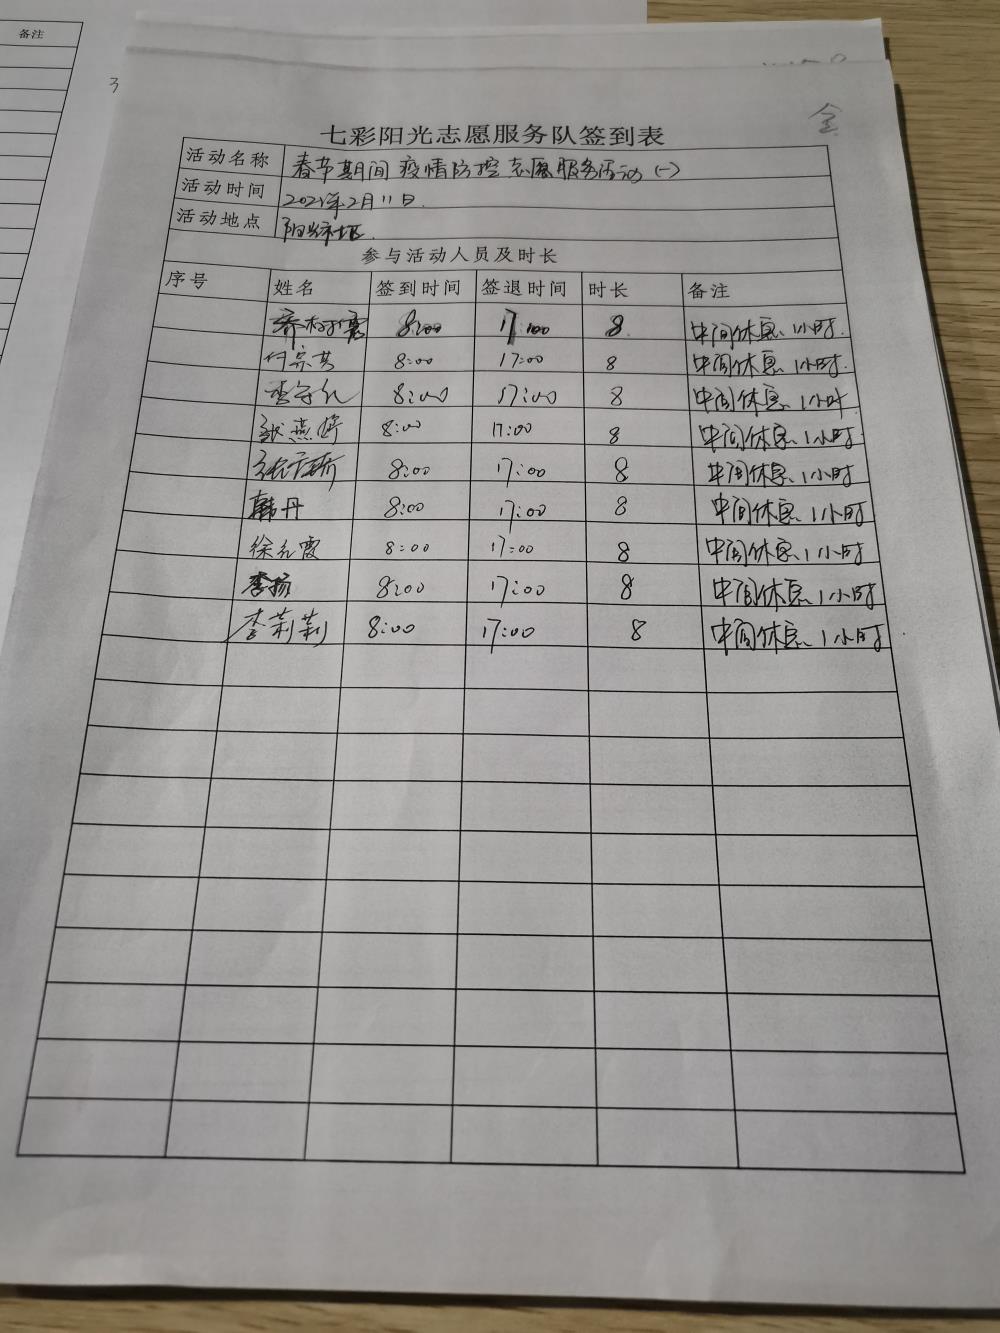 备注
3
全
七彩阳光志愿服务队签到表
活动名称 春节期间疫情防控志愿服务活动(一)
活动时间 2021年2月11日.
活动地点 阳光社区.
参与活动人员及时长
序号 姓名 签到时间 签退时间 时长 备注
8:00 17:00 8 中间休息、1小时.
付宗英 8:00 17:00 8 中间休息、1小时.
8:00 17:00 8 中间休息、1小时
张燕婷 8:00 17:00 8 中间休息、1小时
8:00 17:00 8 中间休息、1小时
韩丹 8:00 17:00 8 中间休息、1小时
徐元霞 8:00 17:00 8 中间休息、1小时
李杨 8:00 17:00 8 中间休息、1小时
李莉莉 8:00 17:00 8 中间休息、1小时